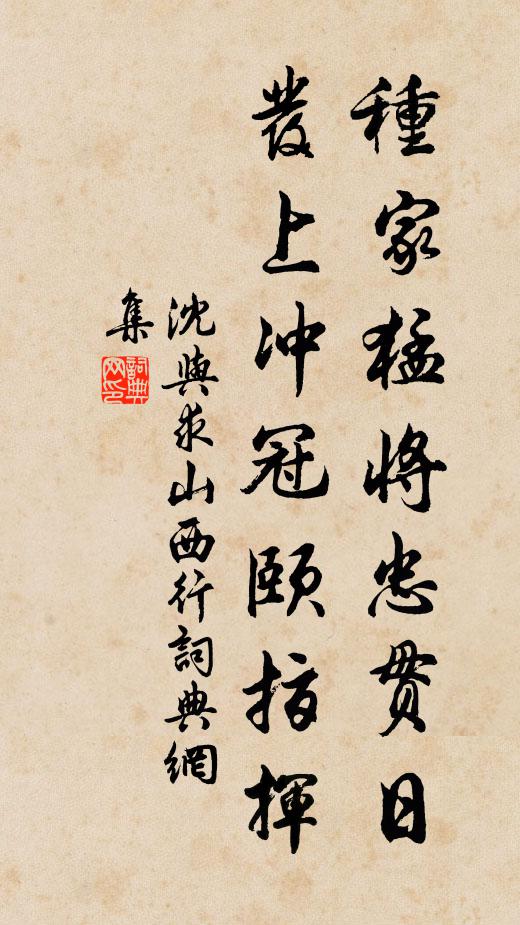 種家猛將忠貫日
發上冲冠頤指揮
沈與求山西行詞典網
集
詞典
网印